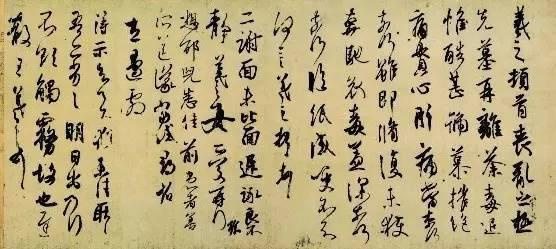 羲之頓首喪亂之極
先墓再離荼毒追
惟酷甚號慕摧絕
痛貫心肝痛當奈何
奈何雖即脩復未獲
奔馳哀毒益深奈何
奈何臨紙感哽不知
何言羲之頓首頓首
二謝面未比面遲詠良
不靜羲之女愛再拜
想邵兒悉佳前患者善
左邊劇
得示知足下猶未佳耿
耿吾亦劣劣明日出乃行
不欲觸霧故也遲
散王羲之頓首